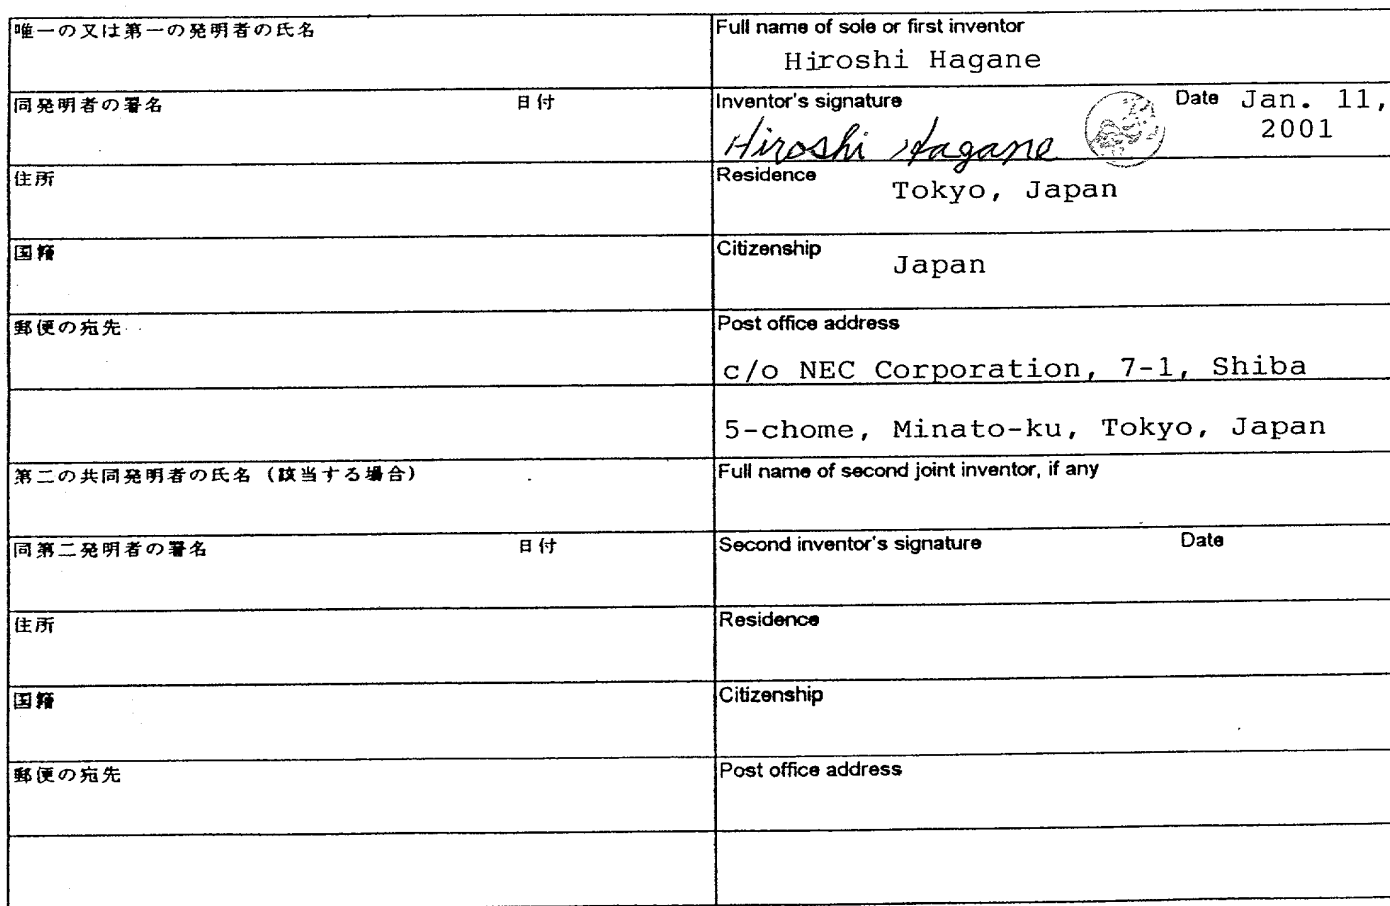 唯一の又は第一の発明者の氏名
Full name of sole or first inventor
Hiroshi Hagane
同発明者の署名 日付
Inventor's signature Date Jan. 11,
2001
Hiroshi Hagane
住所
Residence
Tokyo, Japan
国籍
Citizenship
Japan
郵便の宛先
Post office address
c/o NEC Corporation, 7-1, Shiba
5-chome, Minato-ku, Tokyo, Japan
第二の共同発明者の氏名（該当する場合）
Full name of second joint inventor, if any
同第二発明者の署名 日付
Second inventor's signature Date
住所
Residence
国籍
Citizenship
郵便の宛先
Post office address